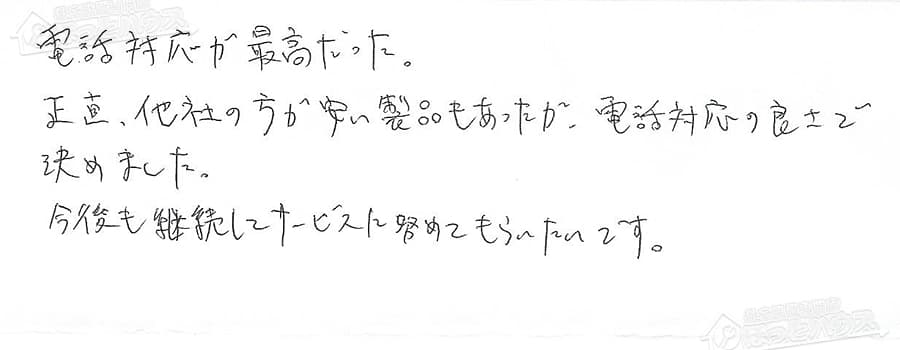 電話対応が最高だった。
正直、他社の方が安い製品もあったが、電話対応の良さで
決めました。
今後も継続してサービスに努めてもらいたいです。